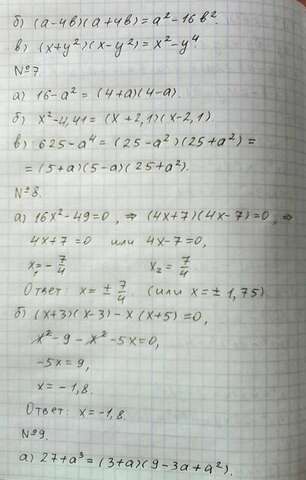 б) (a-4в)(a+4в)=a²-16в².
в) (x+y²)(x-y²)=x²-y⁴
№7.
а) 16-a²=(4+a)(4-a).
б) x²-4,41=(x+2,1)(x-2,1)
в) 625-a⁴=(25-a²)(25+a²)=
=(5+a)(5-a)(25+a²).
№8.
а) 16x²-49=0, ⇒ (4x+7)(4x-7)=0, ⇒
4x+7=0 или 4x-7=0,
x₁=-7/4 x₂=7/4
Ответ: x=±7/4 (или x=±1,75)
б) (x+3)(x-3)-x(x+5)=0,
x²-9-x²-5x=0,
-5x=9,
x=-1,8.
Ответ: x=-1,8.
№9.
а) 27+a³=(3+a)(9-3a+a²).